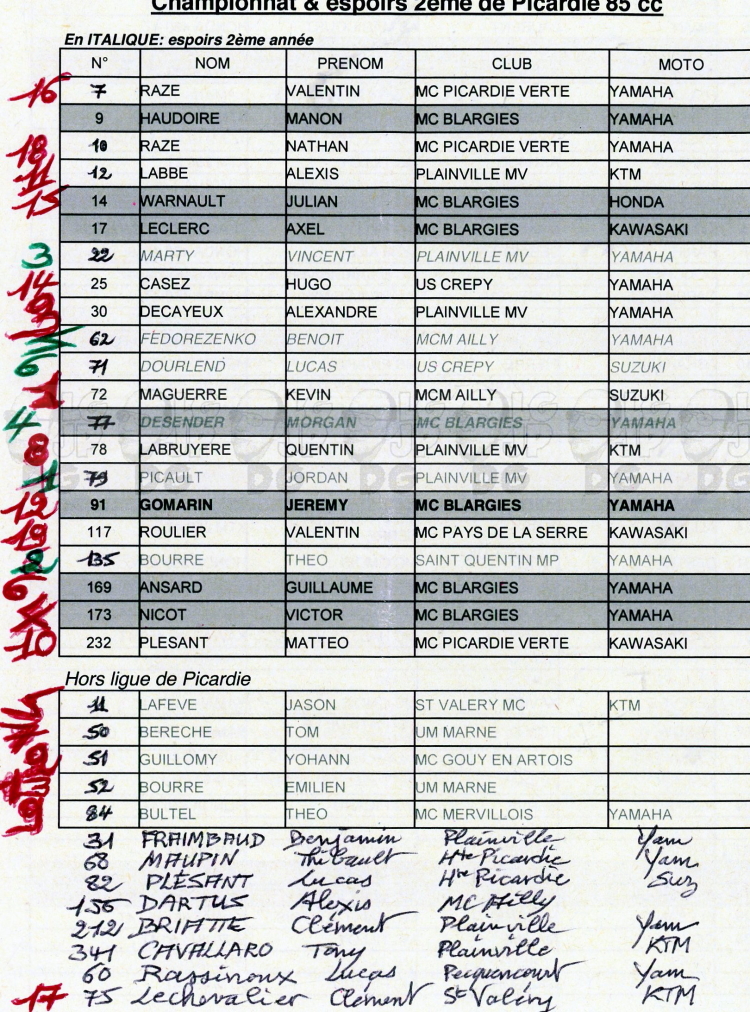 Championnat & espoirs 2ème de Picardie 85 cc
En ITALIQUE: espoirs 2ème année
N° NOM PRENOM CLUB MOTO
16 7 RAZE VALENTIN MC PICARDIE VERTE YAMAHA
9 HAUDOIRE MANON MC BLARGIES YAMAHA
18 10 RAZE NATHAN MC PICARDIE VERTE YAMAHA
11 12 LABBE ALEXIS PLAINVILLE MV KTM
15 14 WARNAULT JULIAN MC BLARGIES HONDA
17 LECLERC AXEL MC BLARGIES KAWASAKI
3 22 MARTY VINCENT PLAINVILLE MV YAMAHA
14 25 CASEZ HUGO US CREPY YAMAHA
30 DECAYEUX ALEXANDRE PLAINVILLE MV YAMAHA
62 FEDOREZENKO BENOIT MCM AILLY YAMAHA
71 DOURLEND LUCAS US CREPY SUZUKI
72 MAGUERRE KEVIN MCM AILLY SUZUKI
4 77 DESENDER MORGAN MC BLARGIES YAMAHA
8 78 LABRUYERE QUENTIN PLAINVILLE MV KTM
79 PICAULT JORDAN PLAINVILLE MV YAMAHA
12 91 GOMARIN JEREMY MC BLARGIES YAMAHA
19 117 ROULIER VALENTIN MC PAYS DE LA SERRE KAWASAKI
135 BOURRE THEO SAINT QUENTIN MP YAMAHA
169 ANSARD GUILLAUME MC BLARGIES YAMAHA
173 NICOT VICTOR MC BLARGIES YAMAHA
10 232 PLESANT MATTEO MC PICARDIE VERTE KAWASAKI
Hors ligue de Picardie
11 LAFEVE JASON ST VALERY MC KTM
50 BERECHE TOM UM MARNE
51 GUILLOMY YOHANN MC GOUY EN ARTOIS
52 BOURRE EMILIEN UM MARNE
84 BULTEL THEO MC MERVILLOIS YAMAHA
31 FRAIMBAUD Benjamin Plainville Yam
68 MAUPIN Thibault Hte Picardie Yam
82 PLESANT Lucas Hte Picardie Suz
156 DARTUS Alexis MC Ailly
212 BRIATTE Clément Plainville Yam
341 CAVALLARO Tony Plainville KTM
60 Rassinoux Lucas Pecquencourt Yam
17 75 Lechevalier Clément St Valéry KTM